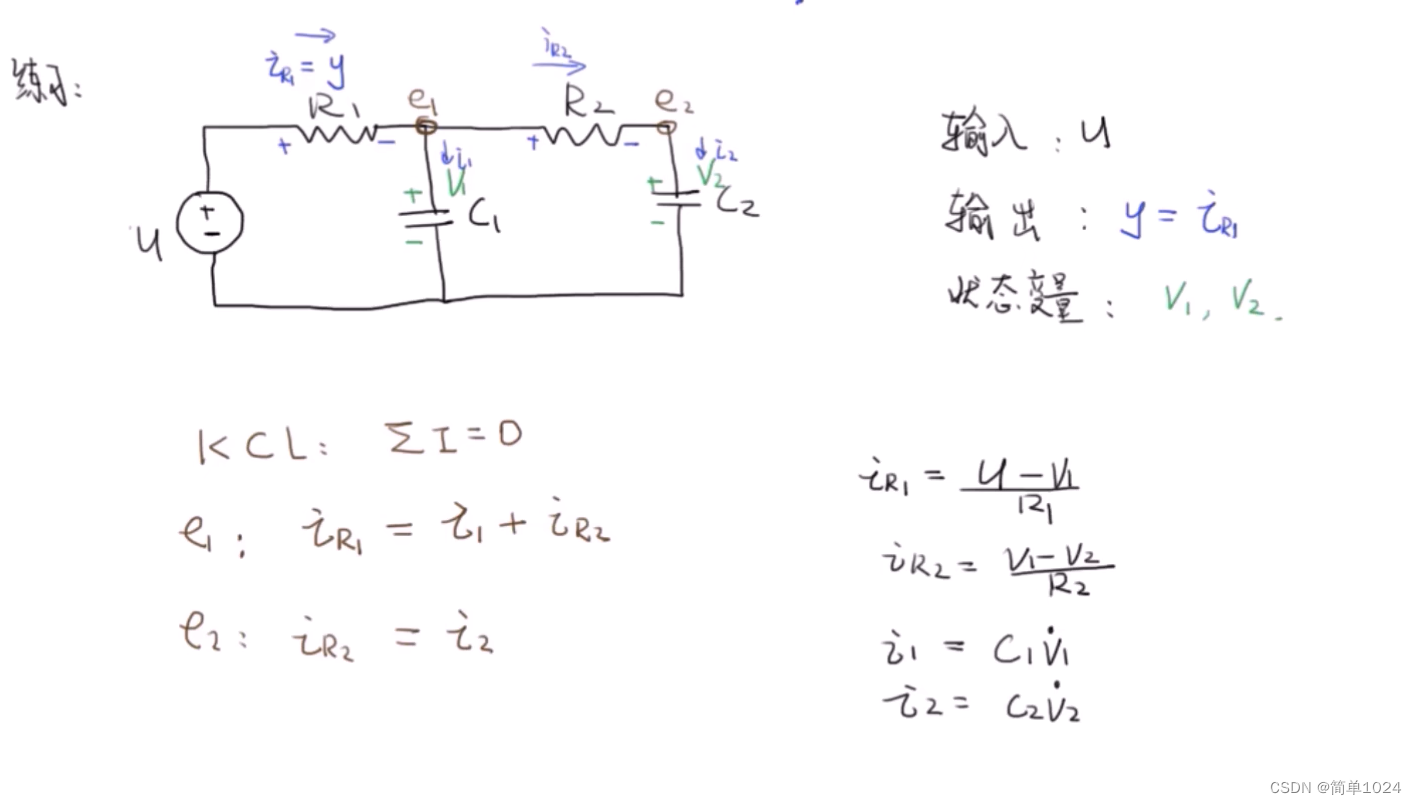 练习:
i_R1 = y
i_R2
R1
e1
R2
e2
+ - + -
i1
i2
+ V1
+ V2
C1
C2
-
-
u
+
-
输入 : u
输出 : y = i_R1
状态变量 : V1, V2.
KCL: ΣI=0
e1: i_R1 = i1 + i_R2
e2: i_R2 = i2
i_R1 = (u-V1)/R1
i_R2 = (V1-V2)/R2
i1 = C1V̇1
i2 = C2V̇2
CSDN @简单1024